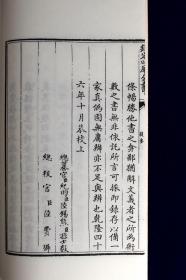 條暢勝他書之弇鄙猶解文義者之所為術
數之書無非依託所言可採即錄存以備一
家真偽固無庸辨亦不足與辨也乾隆四十
六年十月恭校上
總纂官臣紀昀臣陸錫熊臣孫士毅
總校官臣陸費墀
提要